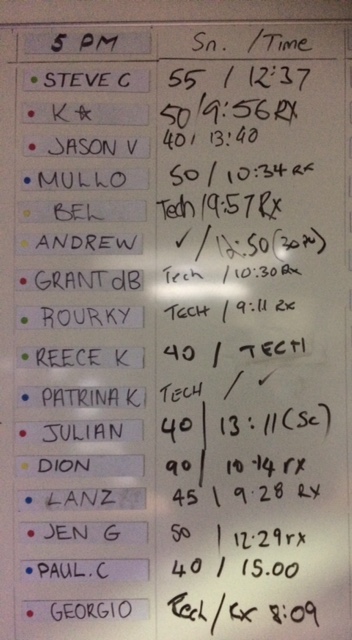 5 PM Sn. / Time
STEVE C 55 / 12:37
K☆ 50 / 9:56 RX
JASON V 40 / 13:40
MULLO 50 / 10:34 RX
BEL Tech / 9:57 RX
ANDREW ✓ / 12:50
GRANT dB Tech / 10:30 RX
ROURKY TECH / 9:11 RX
REECE K 40 / TECH
PATRINA K TECH / ✓
JULIAN 40 | 13:11 (Sc)
DION 90 / 10:14 rx
LANZ 45 | 9:28 RX
JEN G 50 | 12:29 rx
PAUL.C 40 / 15.00
GEORGIO Tech / RX 8:09